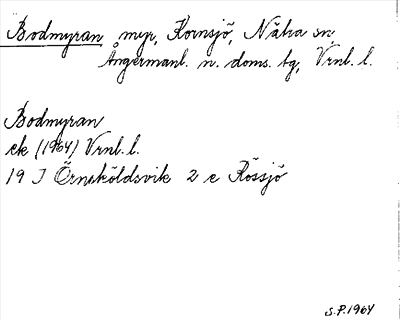 Bodmyran myr, Kornsjö, Nätra sn,
Ångermanl. n. doms. tg, Vrnl. l.
Bodmyran
ek (1964) Vrnl. l.
19 J Örnsköldsvik 2 e Rössjö
S.P. 1964